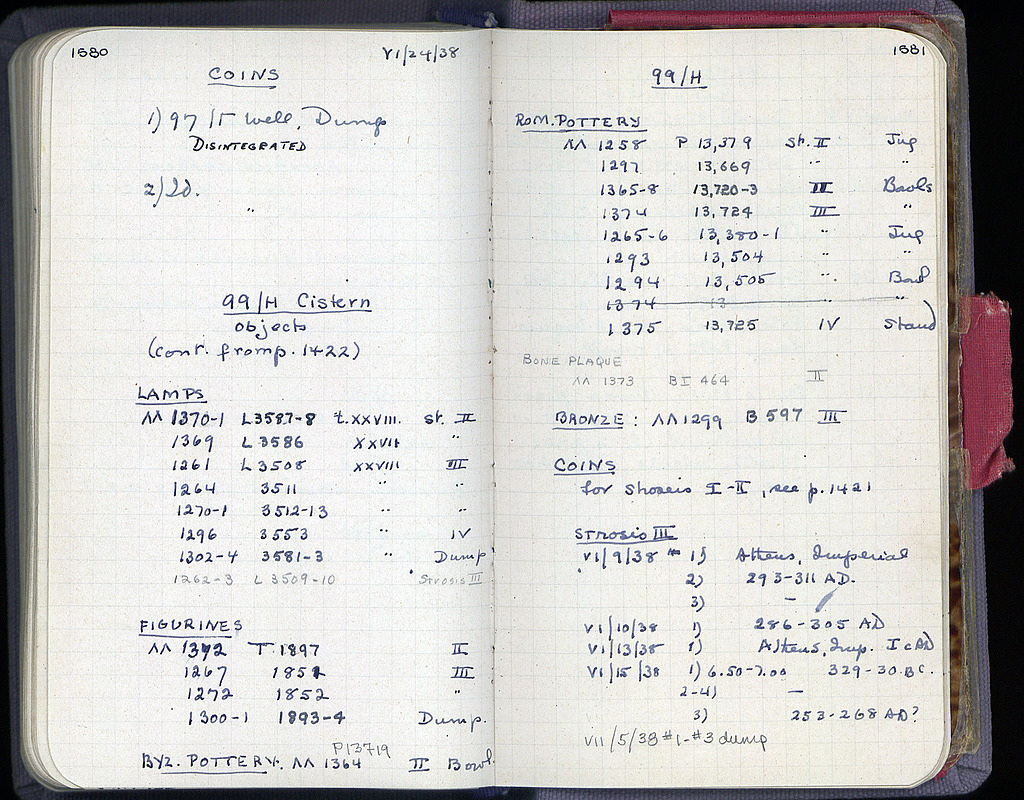 1580 VI/24/38
COINS
1) 97/ΙΓ Well, Dump
DISINTEGRATED
2) 20.
"
99/H Cistern
objects
(cont. from p. 1422)
LAMPS
ΛΛ 1370-1 L3587-8 t.XXVIII. st. II
1369 L 3586 XXVII "
1261 L 3508 XXVIII III
1264 3511 " "
1270-1 3512-13 " "
1296 3553 " IV
1302-4 3581-3 " Dump
1262-3 L 3509-10 Strosis III
FIGURINES
ΛΛ 1372 T 1897 II
1267 1851 III
1272 1852 "
1300-1 1893-4 Dump.
P13719
BYZ. POTTERY. ΛΛ 1364 II Bowl
1581
99/H
ROM. POTTERY
ΛΛ 1258 P 13,379 st. II Jug
1297 13,669 " "
1365-8 13,720-3 III Bowls
1374 13,724 III "
1265-6 13,380-1 " Jug
1293 13,504 " "
1294 13,505 " Bowl
1374 13 " "
1375 13,725 IV Stand
BONE PLAQUE
ΛΛ 1373 BI 464 II
BRONZE: ΛΛ 1299 B 597 III
COINS
for Strosis I-II, see p. 1421
Strosis III
VI/9/38 # 1) Athens, Imperial
2) 293-311 AD.
3) —
VI/10/38 1) 286-305 AD
VI/13/38 1) Athens, Imp. I c AD
VI/15/38 1) 6.50-7.00 329-30 BC.
2-4) —
3) 253-268 AD?
VII/5/38 #1-#3 dump